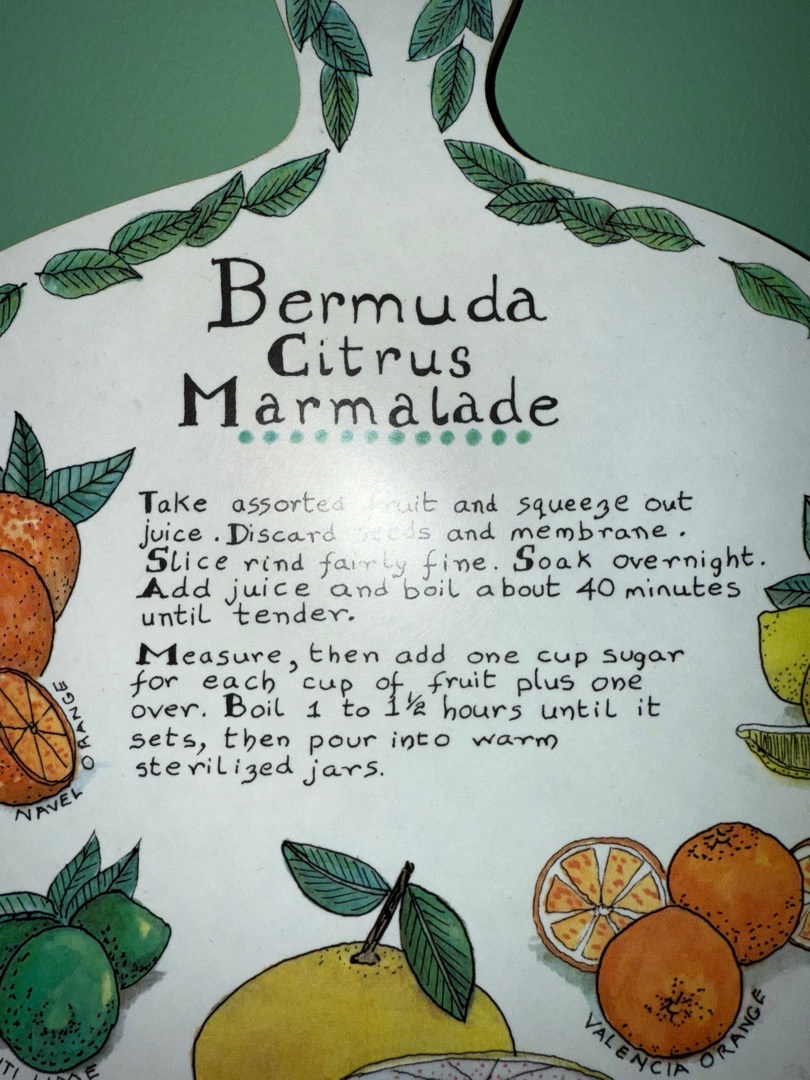 Bermuda
Citrus
Marmalade
Take assorted fruit and squeeze out
juice. Discard seeds and membrane.
Slice rind fairly fine. Soak overnight.
Add juice and boil about 40 minutes
until tender.
Measure, then add one cup sugar
for each cup of fruit plus one
over. Boil 1 to 1½ hours until it
sets, then pour into warm
sterilized jars.
NAVEL ORANGE
VALENCIA ORANGE